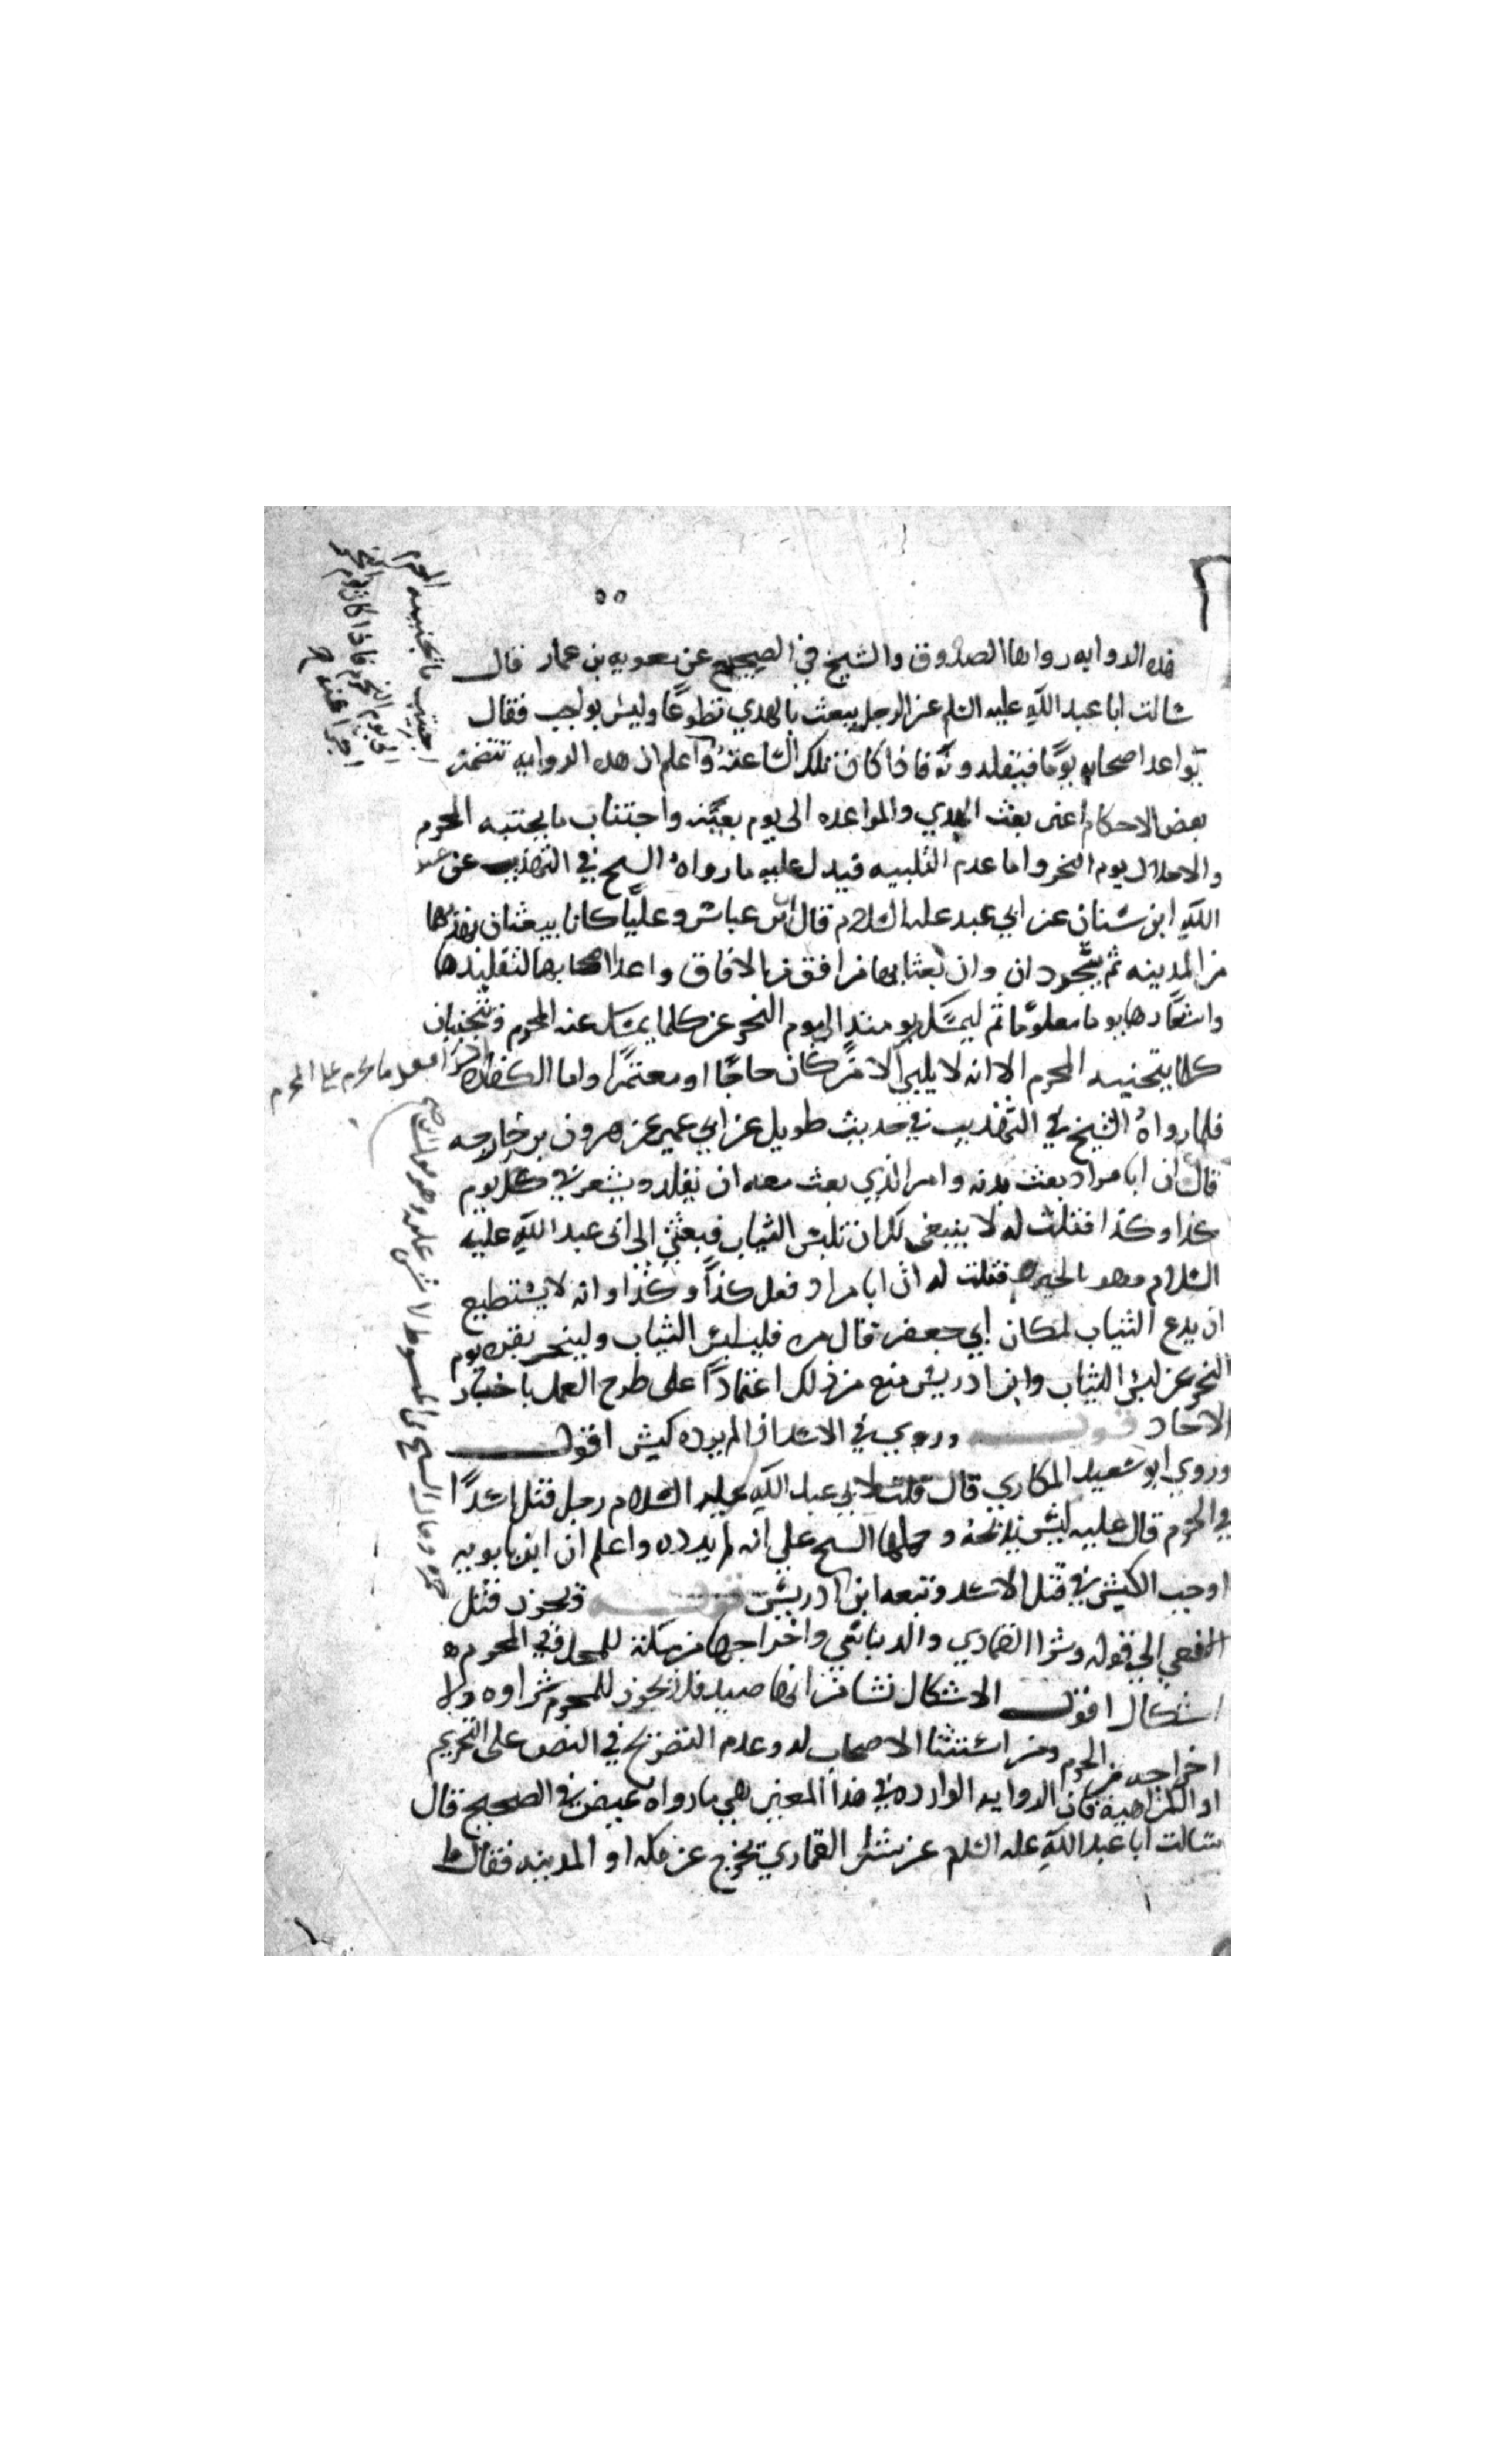 هذه الروايه رواها الصدوق والشيخ في الصحيح عن معويه بن عمار قال
سالت ابا عبد الله عليه السلم عن الرجل يبعث بالهدي تطوعًا وليس بواجب فقال
يواعد اصحابه يومًا فيقلدونه فاذا كان تلك الساعة واعلم ان هذه الروايه تتضمن
بعض الاحكام اعني بعث الهدي والمواعده الى يوم بعينه واجتناب ما يجتنبه المحرم
والاحلال يوم النحر واما عدم التلبيه فيدل عليه ما رواه الشيخ في التهذيب عن عبد
الله ابن سنان عن ابي عبد عليه السلام قال ابن عباس وعليًا كانا يبعثان بهديهما
من المدينه ثم يتجردان وان بعثا بهما من افق من الافاق واعدا اصحابهما لتقليدهما
واشعارهما يوما معلومًا ثم ليمسك يومئذ الى يوم النحر عن كلما يمسك عنه المحرم ويجتنبان
كلما يتجنبه المحرم الا انه لا يلبي الا من كان حاجًا او معتمرًا واما الكفاره
فلما رواه الشيخ في التهذيب في حديث طويل عن ابي عمير عن هرون بن خارجه
قال ان ابا مراد بعث بدنه وامر الذي بعث معه ان يقلد ويشعر في كل يوم
كذا وكذا فقلت له لا ينبغي لك ان تلبس الثياب فبعثني الى ابى عبد الله عليه
السلام وهو بالحيره فقلت له ان ابا مراد فعل كذا وكذا وانه لا يستطيع
ان يدع الثياب لمكان ابي جعفر قال مره فليلبس الثياب ولينحر بقره يوم
النحر عن لبس الثياب وابن ادريس منع من ذلك اعتمادًا على طرح العمل باخبار
الاحاد قوله وروي في الاسد اذا لم يرده كبش اقول
وروي ابو سعيد المكاري قال قلت لابي عبد الله عليه السلام رجل قتل اسدًا
في الحرم قال عليه كبش يذبحه وحملها الشيخ علي انه لم يرده واعلم ان ابن بابويه
اوجب الكبش في قتل الاسد وتبعه ابن ادريس قوله ويجوز قتل
الافعي الي قوله وشرا القماري والدباسي واخراجها من مكة للمحل في المحرم
اشكال اقول الاشكال نشا من انها صيد فلا يجوز للمحرم شراوه ولا
اخراجه من الحرم ومن استثنا الاصحاب له وعدم التصريح في النص على التحريم
او الكراهية فان الروايه الوارده في هذا المعني هي ما رواه عيص في الصحيح قال
سالت ابا عبد الله عليه السلم عن شرا القماري تخرج عن مكه او المدينه فقال ما
اجتنب ما يجتنبه المحرم
الى يوم النحر فاذا كان يوم النحر
اجزا عنه
يفعل ما يحرم على المحرم